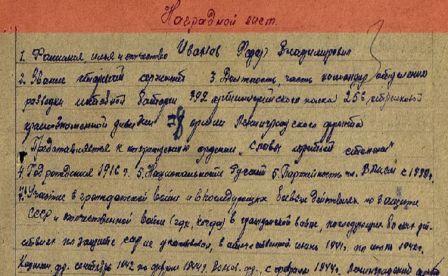 Наградной лист.
1. Фамилия имя и отчество Иванов Федор Владимирович
2. Звание старший сержант 3. Должность, часть командир отделения
разведки штабной батареи 392 артиллерийского полка 256 стрелковой
краснознаменной дивизии армии Ленинградского фронта
Представляется к награждению орденом "Славы третьей степени"
4. Год рождения 1916 г. 5. Национальность Русский 6. Партийность чл. ВКП(б) с
7. Участие в гражданской войне и в последующих боевых действиях по защите
СССР и отечественной войне (где, когда) в гражданской войне, последующих боевых дей-
ствиях по защите СССР не участвовал, в отечественной июнь 1941 г. по 1942 г.
фр. сентябрь 1942 по февраль 1944 г. Волхов. фр., с февраля 1944 г. Ленинградский фронт